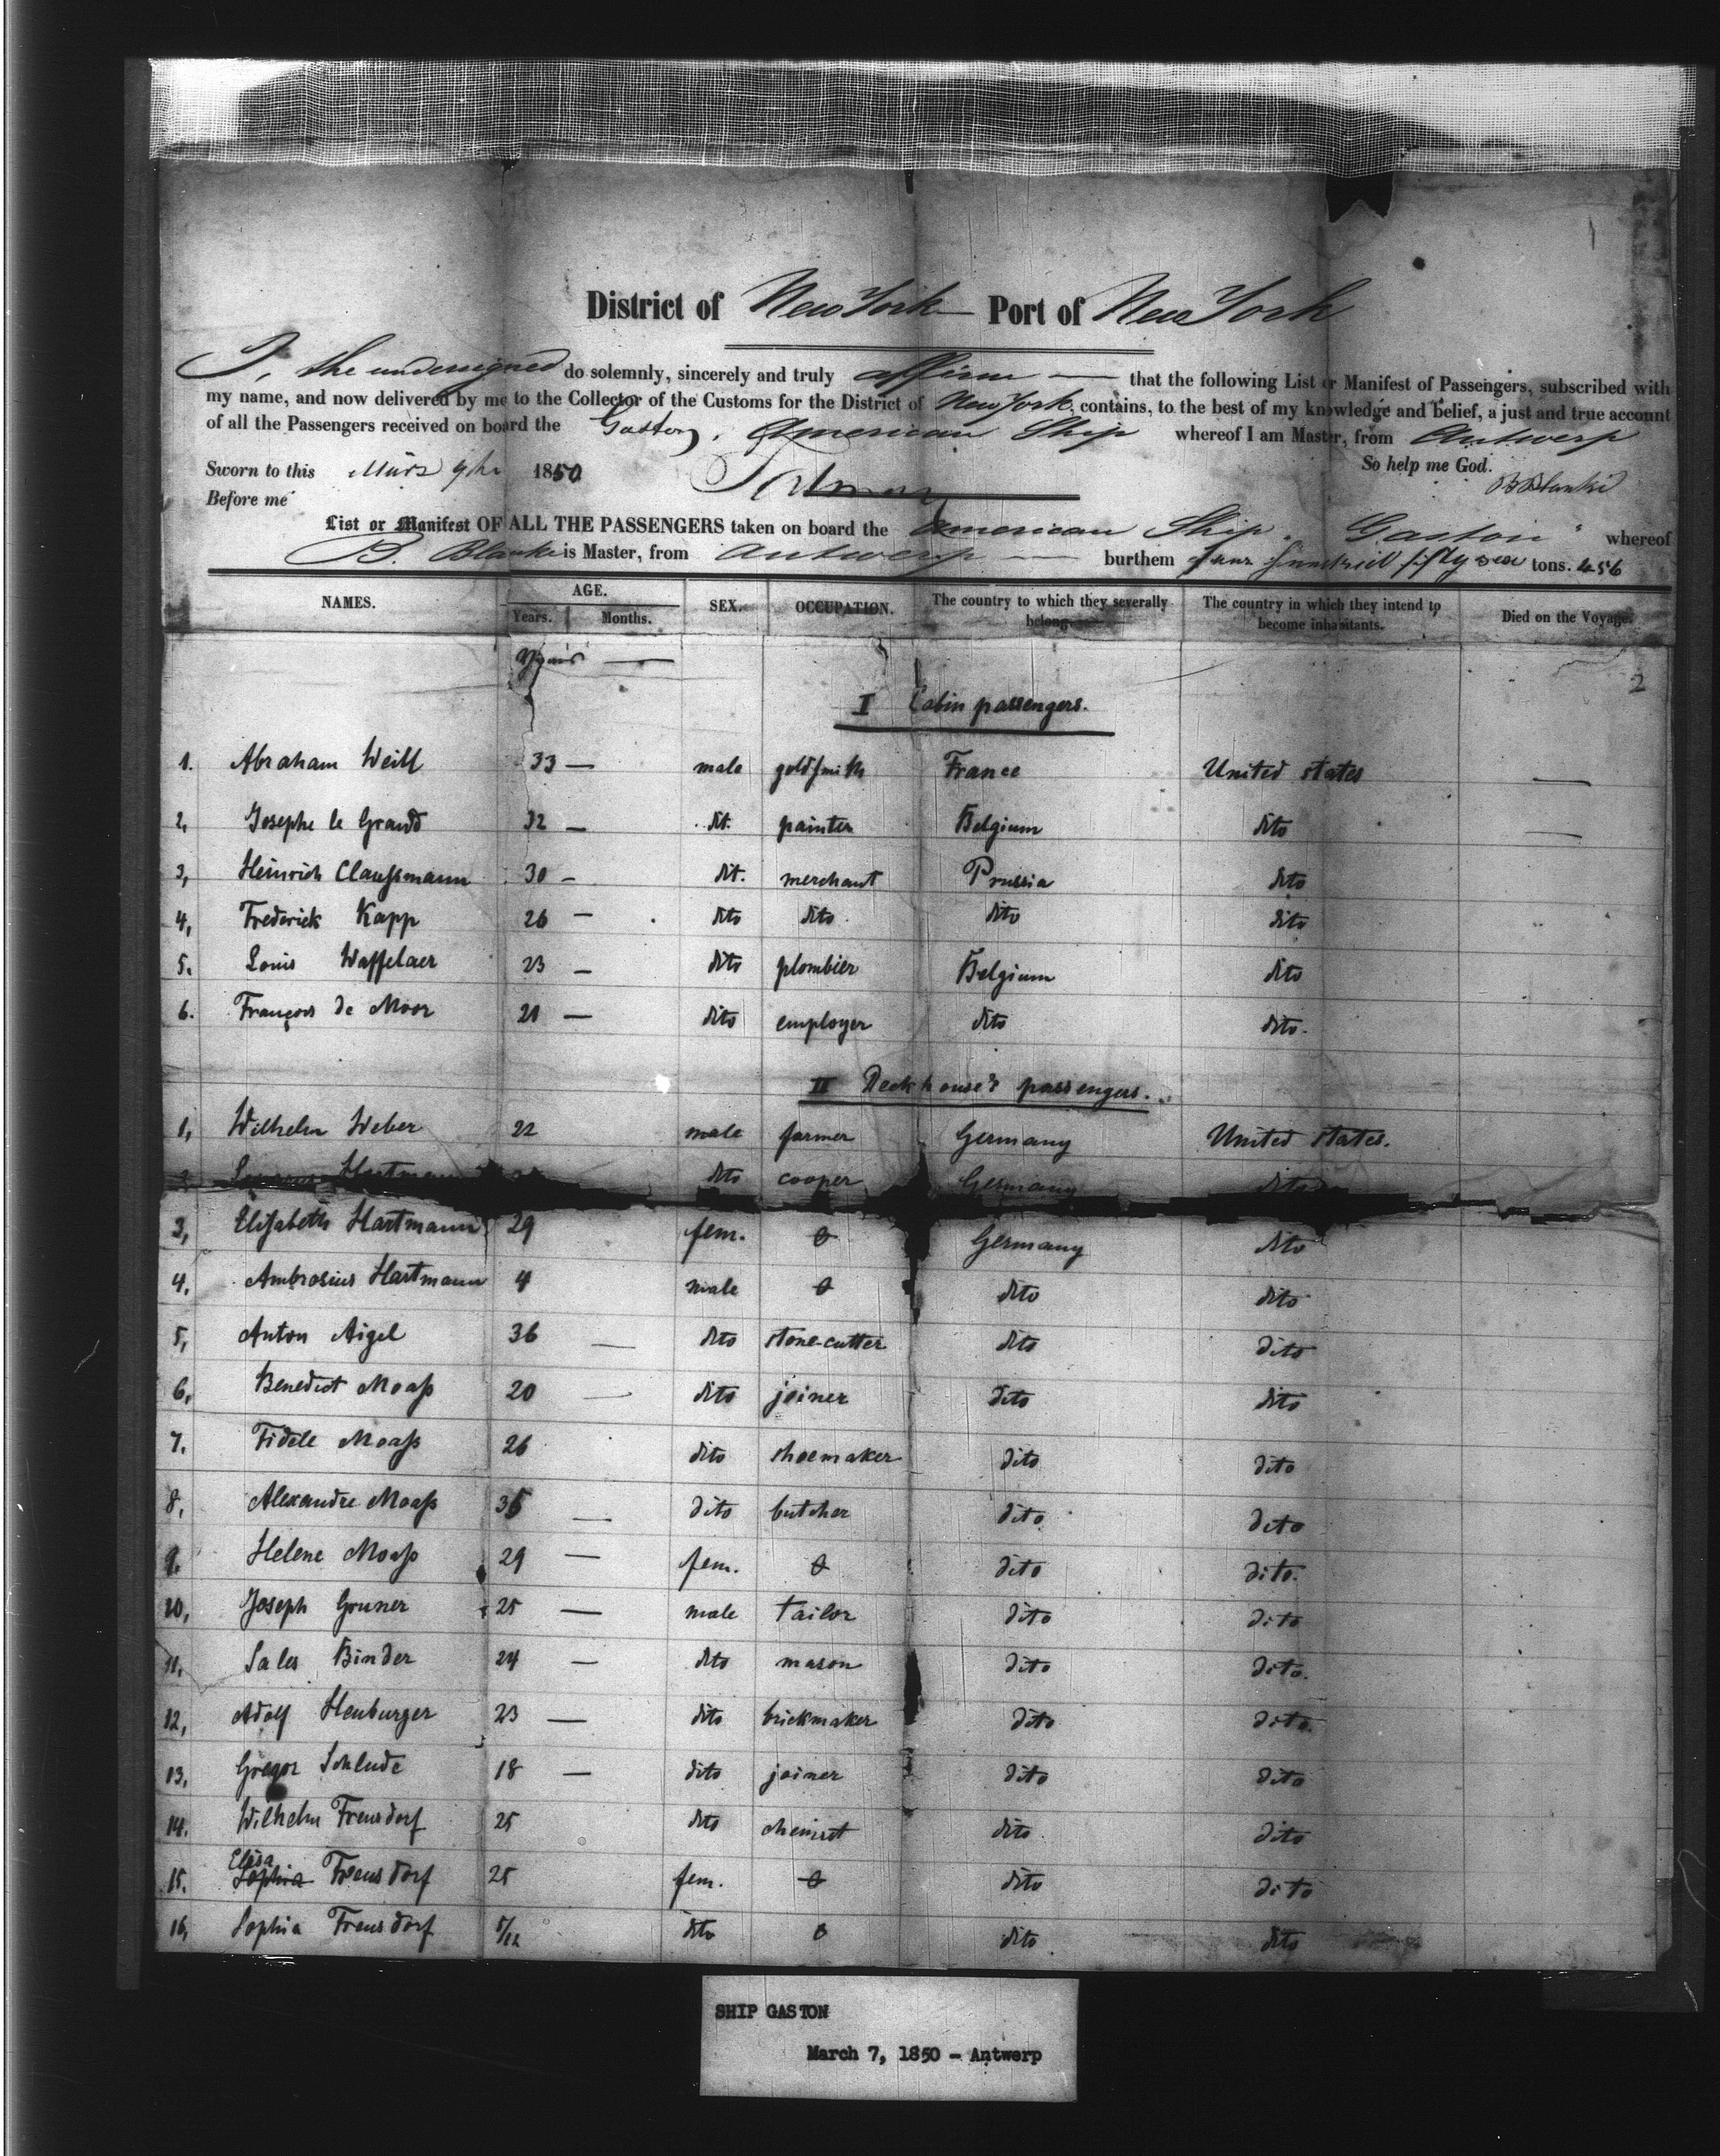 District of New York Port of New York
I, the undersigned do solemnly, sincerely and truly affirm — that the following List or Manifest of Passengers, subscribed with
my name, and now delivered by me to the Collector of the Customs for the District of New York, contains, to the best of my knowledge and belief, a just and true account
of all the Passengers received on board the Gaston, American Ship whereof I am Master, from Antwerp
Sworn to this 1850 So help me God.
Before me B Blanke
List or Manifest OF ALL THE PASSENGERS taken on board the American Ship "Gaston" whereof
B. Blanke is Master, from Antwerp — burthem four hundred fifty six tons. 456
NAMES. AGE. SEX. OCCUPATION. The country to which they severally belong. The country in which they intend to become inhabitants. Died on the Voyage.
Years. Months.
2
I Cabin passengers.
1. Abraham Weill 33 — male goldsmith France United states —
2, Josephe le Grand 32 — dit. painter Belgium dito —
3, Heinrich Claußmann 30 - dit. merchant Prussia dito
4, Frederick Kapp 26 — dito dito dito dito
5. Louis Waffelaer 23 — dito plombier Belgium dito
6. François de Moor 21 — dito employer dito dito.
II Deckhouse's passengers.
1, Wilhelm Weber 22 male farmer Germany United states.
2, Hartmann dito cooper Germany dito
3, Elisabeth Hartmann 29 fem. 0 Germany dito
4. Ambrosius Hartmann 4 male 0 dito dito
5, Anton Aigel 36 — dito stone-cutter dito dito
6, Benedict Moaß 20 — dito joiner dito dito
7. Fidele Moaß 26 dito shoemaker dito dito
8, Alexandre Moaß 35 — dito butcher dito dito
9. Helene Moaß 29 — fem. 0 dito dito.
10, Joseph Gruner 25 — male tailor dito dito
11, Sales Binder 24 — dito mason dito dito.
12, Adolf Heuburger 23 — dito brickmaker dito dito.
13, Gregor Schlude 18 — dito joiner dito dito
14. Wilhelm Frensdorf 25 dito chemist dito. dito
Elisa
15. Sophia Frensdorf 25 fem. 0 dito dito
16, Sophia Frensdorf 5/12 dito 0 dito dito
SHIP GASTON
March 7, 1850 - Antwerp